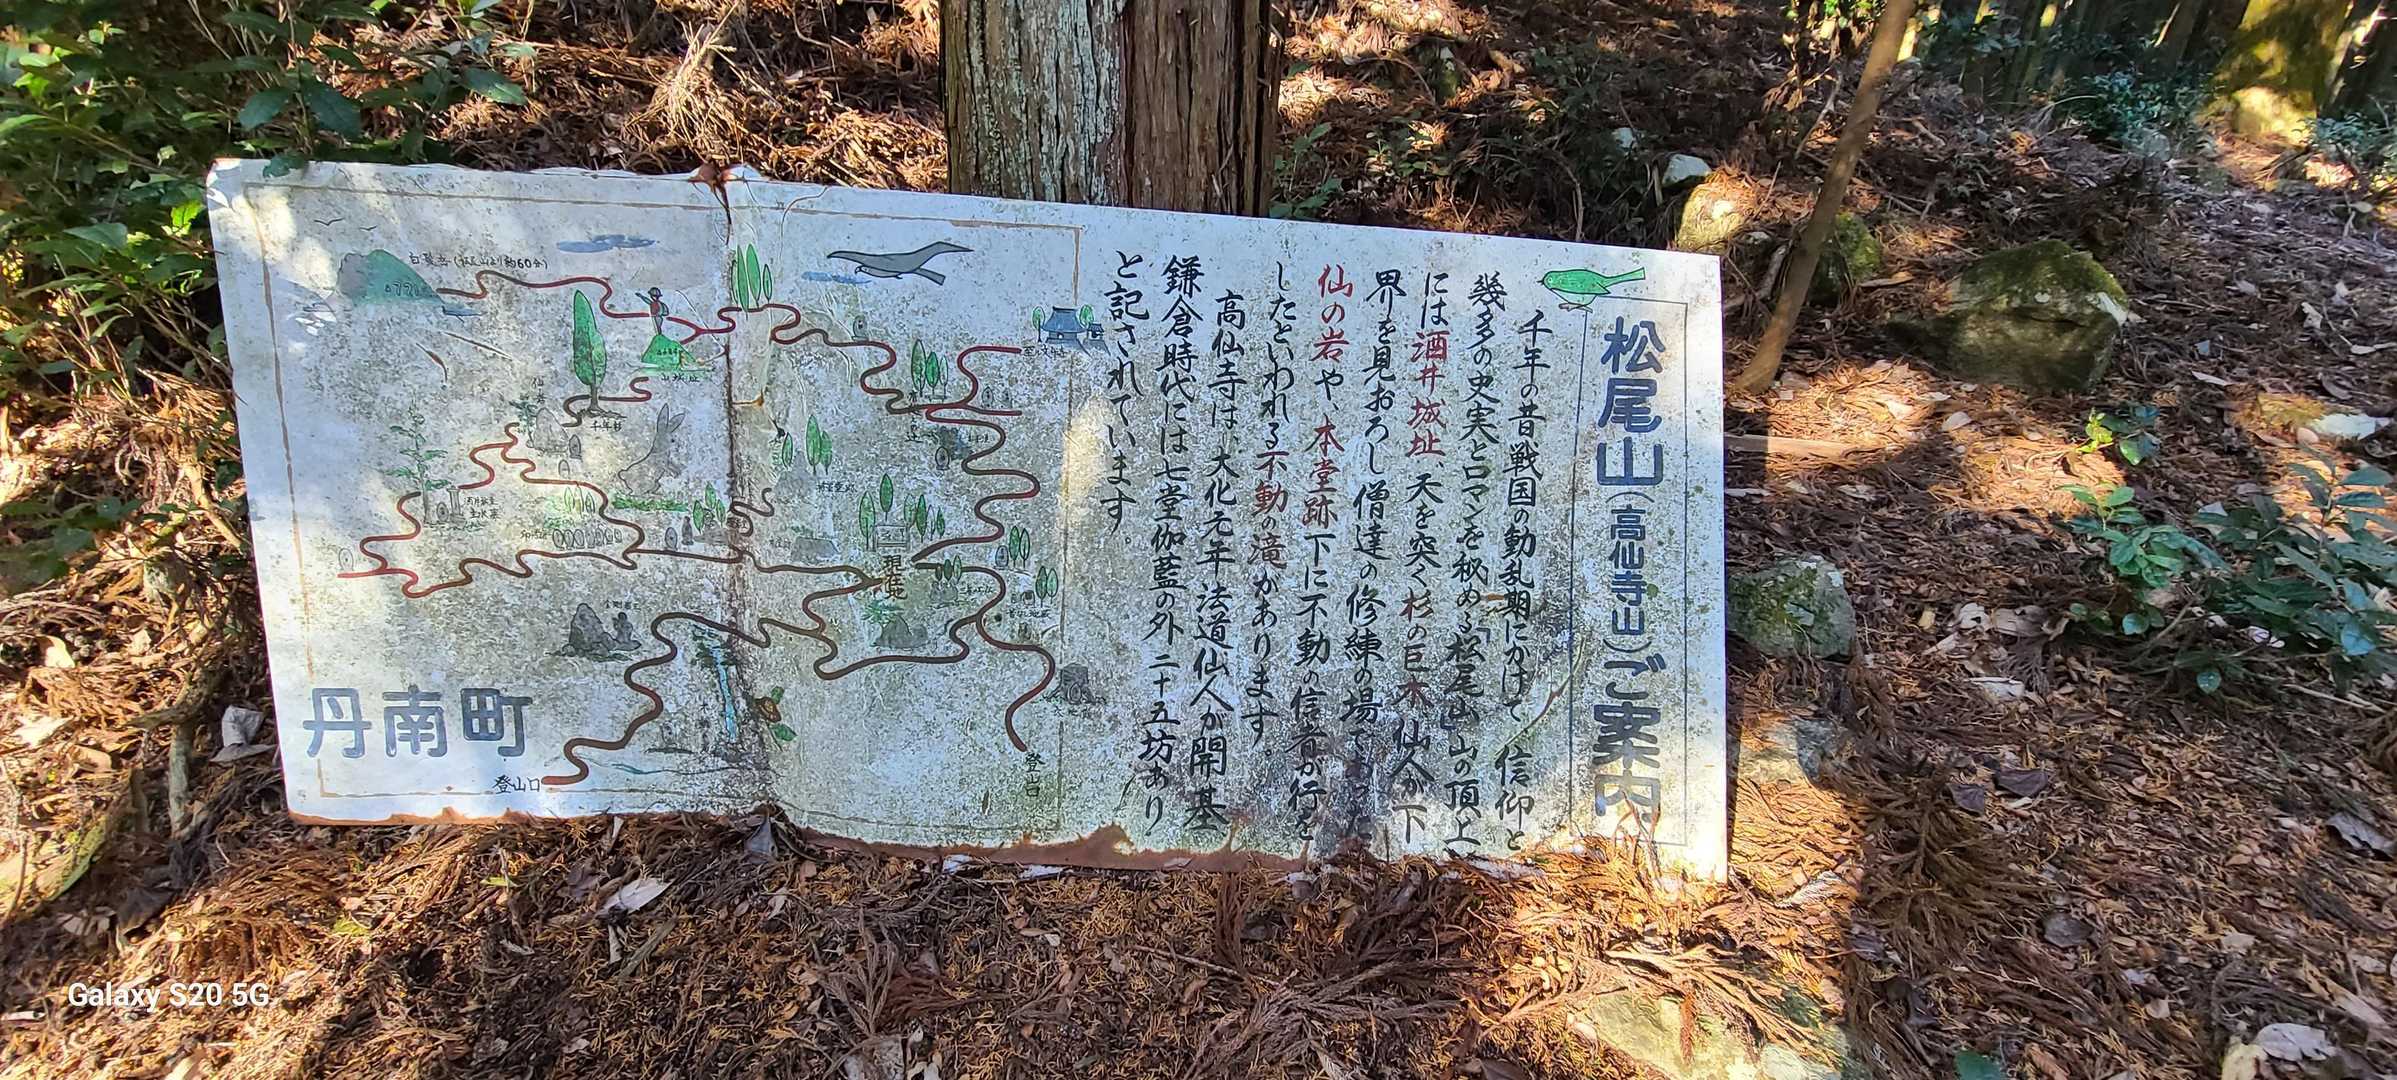 松尾山(高仙寺山)ご案内
千年の昔戦国の動乱期にかけて信仰と
幾多の史実とロマンを秘める「松尾山」山の頂上
には酒井城址、天を突く杉の巨木仙人が下
界を見おろし僧達の修練の場であった
仙の岩や、本堂跡下に不動の信者が行を
したといわれる不動の滝があります。
高仙寺は、大化元年法道仙人が開基
鎌倉時代には七堂伽藍の外二十五坊あり
と記されています。
白髪岳(松尾山より約60分)
山城址
千年杉
現在地
登山口
登山口
丹南町
Galaxy S20 5G